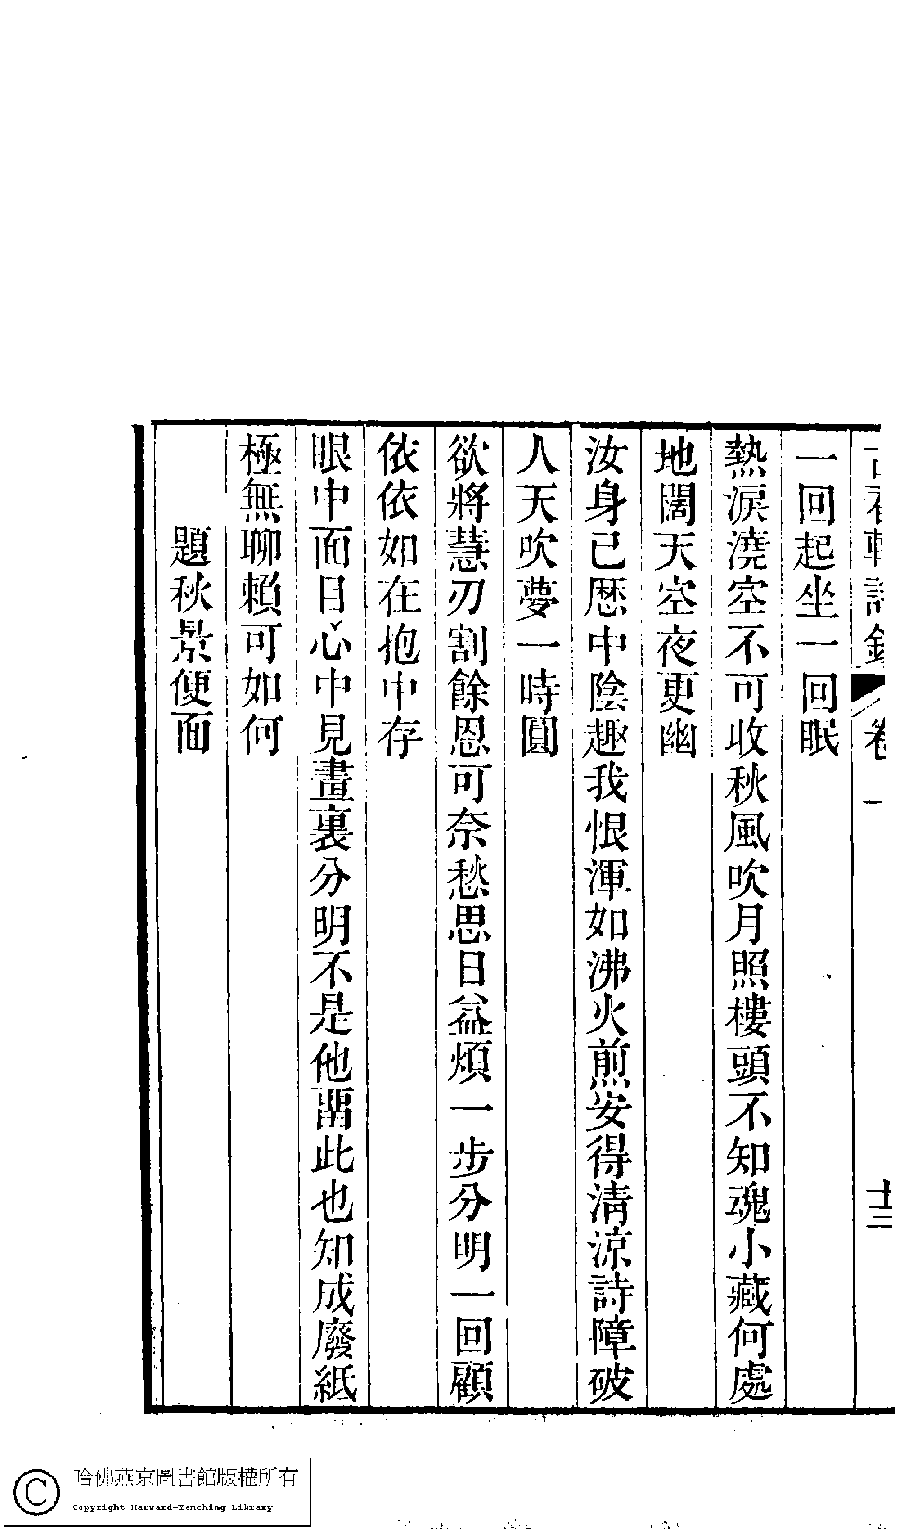 一回起坐一回眠
熱淚澆空不可收秋風吹月照樓頭不知魂小藏何處
地闊天空夜更幽
汝身已歷中陰趣我恨渾如沸火煎安得清涼詩障破
人天吹夢一時圓
欲將慧刃割餘恩可奈愁思日益煩一步分明一回顧
依依如在抱中存
眼中面目心中見畫裏分明不是他留此也知成廢紙
極無聊賴可如何
題秋景便面
卷一
十三
哈佛燕京圖書館版權所有
Copyright Harvard-Yenching Library